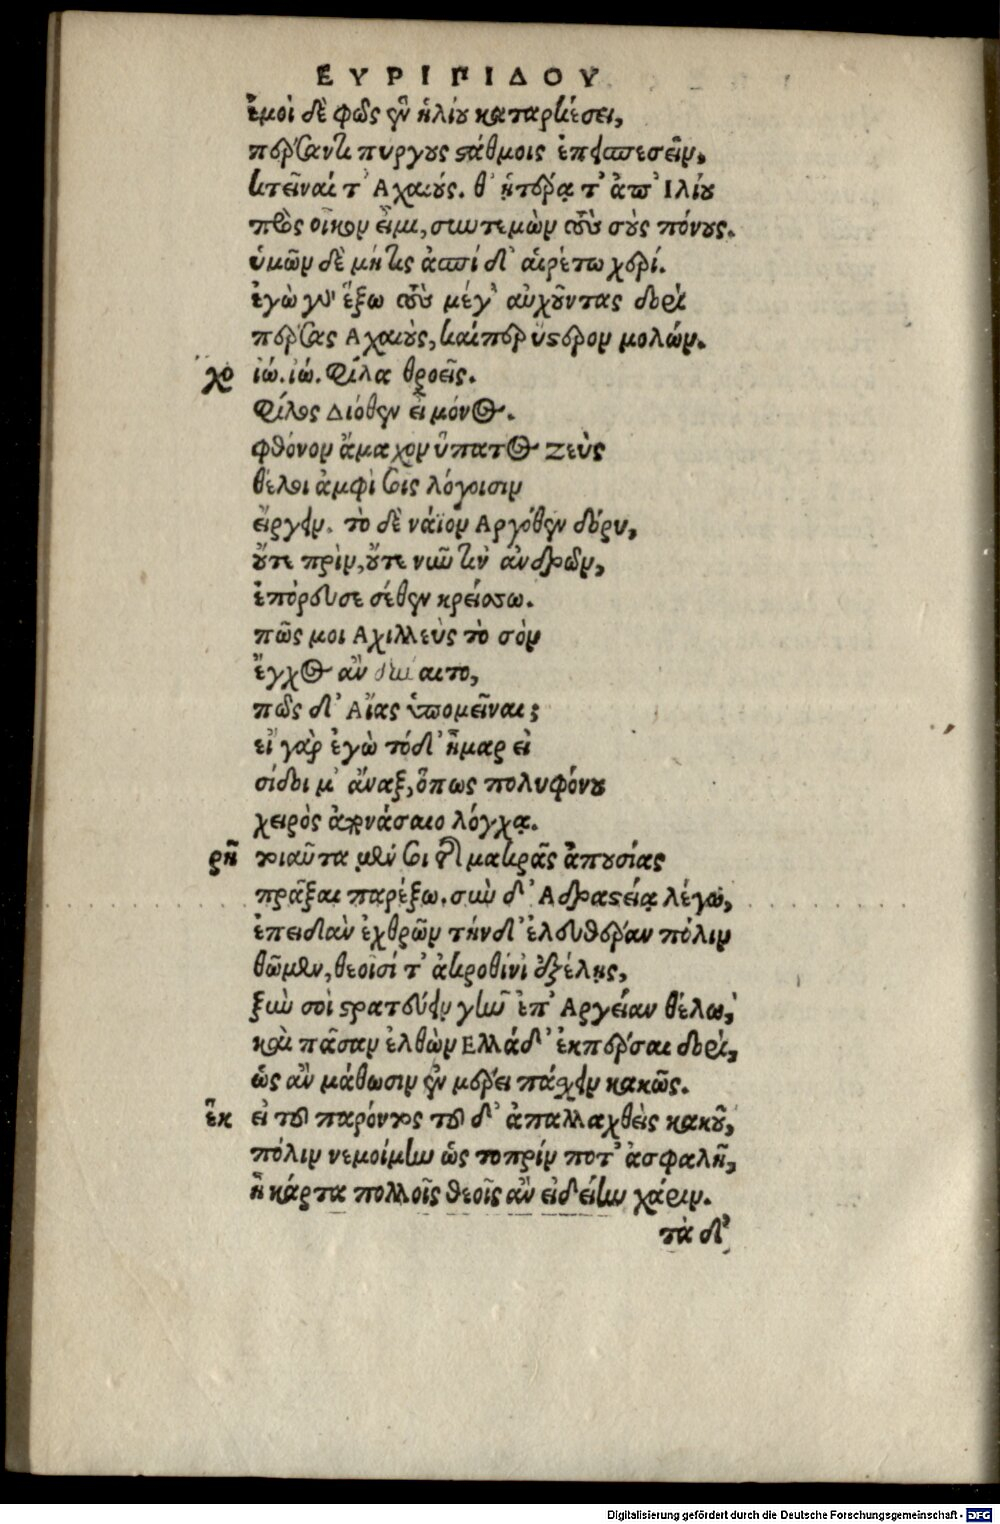 ΕΥΡΙΠΙΔΟΥ
ἐμοὶ δὲ φῶς ἓν ἡλίου καταρκέσει,
πέρσαντι πύργους ϛάθμοις ἐπεισπεσεῖν,
κτεῖναί τ' Αχαιούς. θ' ἡτέρᾳ τ' ἀπ' Ιλίου
πρὸς οἶκον εἶμι, συντεμὼν τοὺς σοὺς πόνους.
ὑμῶν δὲ μήτις ἀσπίδ' αἰρέτω χερί.
ἐγὼ γὰρ ἕξω τοὺς μέγ' αὐχοῦντας δορὶ
πέρσας Αχαιοὺς, καίπερ ὕϛερον μολών.
χο ἰώ. ἰώ. φίλα θροεῖς.
φίλος Διόθεν εἶ μόνος.
φθόνον ἄμαχον ὕπατος Ζεὺς
θέλοι ἀμφὶ σοῖς λόγοισιν
εἴργειν. τὸ δὲ νάϊον Αργόθεν δόρυ,
οὔτε πρὶν, οὔτε νῦν τιν' ἀνδρῶν,
ἐπόρευσε σέθεν κρείσσω.
πῶς μοι Αχιλλεὺς τὸ σὸν
ἔγχος ἂν δύναιτο,
πῶς δ' Αἴας ὑπομεῖναι;
εἰ γὰρ ἐγὼ τόδ' ἦμαρ εἰ
σίδοιμ' ἄναξ, ὅπως πολυφόνου
χειρὸς ἀποινάσαιο λόγχᾳ.
ρῆ τοιαῦτα μέν σοι τῆς μακρᾶς ἀπουσίας
πρᾶξαι παρέξω. σὺν δ' Αδραϛείᾳ λέγω,
ἐπειδὰν ἐχθρῶν τήνδ' ἐλευθέραν πόλιν
θῶμεν, θεοῖσί τ' ἀκροθίνι' ἐξέλῃς,
ξὺν σοὶ ϛρατεύειν γῆν ἐπ' Αργείαν θέλω,
καὶ πᾶσαν ἐλθὼν Ελλάδ' ἐκπέρσαι δορὶ,
ὡς ἂν μάθωσιν ἐν μέρει πάσχειν κακῶς.
ἕκ εἰ τοῦ παρόντος τοῦδ' ἀπαλλαχθεὶς κακοῦ,
πόλιν νεμοίμην ὡς τοπρίν ποτ' ἀσφαλῆ,
ἦ κάρτα πολλοῖς θεοῖς ἂν εἰδείην χάριν.
τὰ δ'
Digitalisierung gefördert durch die Deutsche Forschungsgemeinschaft - DFG